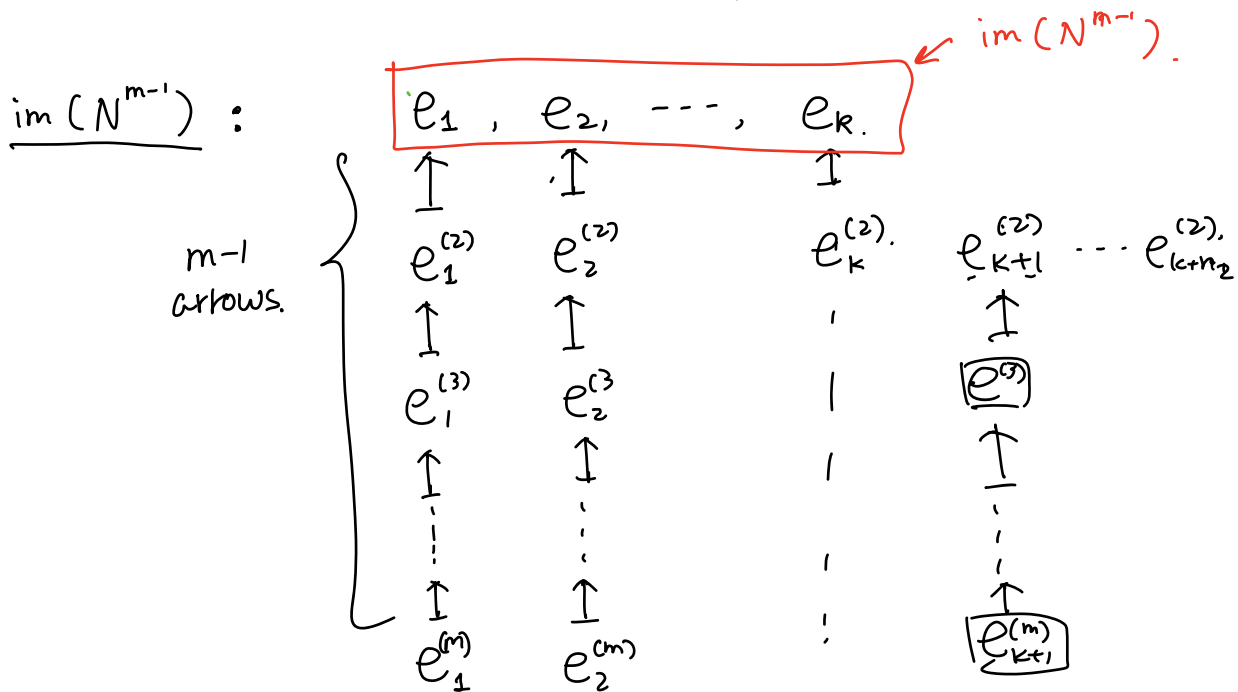 im(N^{m-1}).
im(N^{m-1}) : e_1, e_2, ---, e_k.
m-1 arrows.
e_1^{(2)} e_2^{(2)} e_k^{(2)}. e_{k+1}^{(2)} ... e_{k+n_2}^{(2)}.
e_1^{(3)} e_2^{(3 e^{(3)}
e_1^{(m)} e_2^{(m)} e_{k+1}^{(m)}